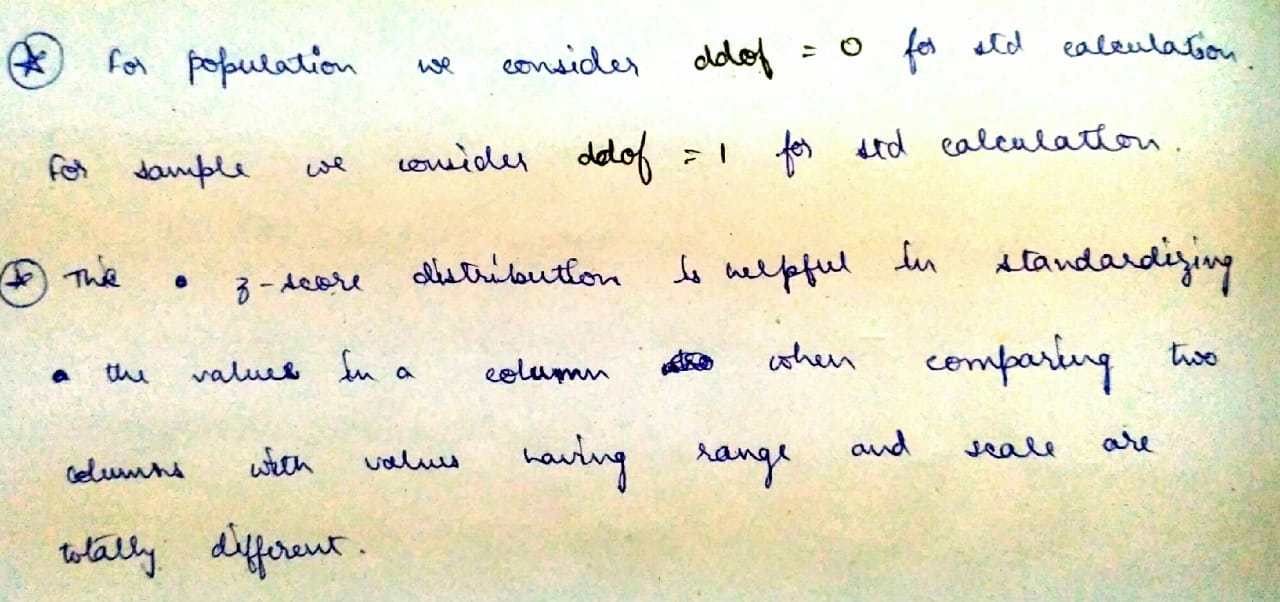 For population we consider ddof = 0 for std calculation.
For sample we consider ddof = 1 for std calculation.
This z-score distribution is helpful in standardizing
the values in a column when comparing two
columns with values having range and scale are
totally different.